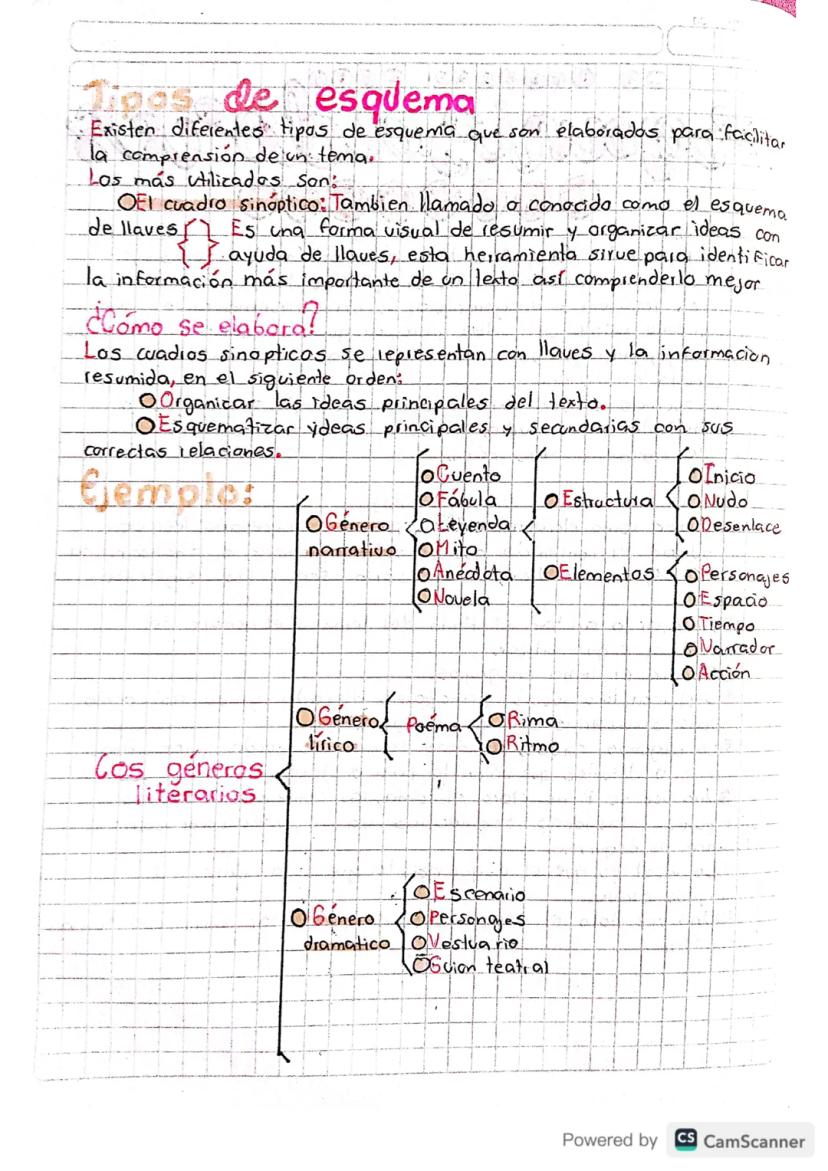 Tipos de esquema
Existen diferentes tipos de esquema que son elaborados para facilitar
la comprensión de un tema.
Los más utilizados son:
El cuadro sinóptico: Tambien llamado o conocido como el esquema
de llaves { } Es una forma visual de resumir y organizar ideas con
ayuda de llaves, esta herramienta sirve para identificar
la información más importante de un texto así comprenderlo mejor
¿Cómo se elabora?
Los cuadros sinopticos se representan con llaves y la informacion
resumida, en el siguiente orden:
Organizar las ideas principales del texto.
Esquematizar ydeas principales y secundarias con sus
correctas relaciones.
Ejemplo:
Los géneros
literarios
Género
narrativo
Cuento
Fábula
Leyenda
Mito
Anécdota
Novela
Estructura
Inicio
Nudo
Desenlace
Elementos
Personajes
Espacio
Tiempo
Narrador
Acción
Género
lírico
Poéma
Rima
Ritmo
Género
dramatico
Escenario
Personajes
Vestuario
Guion teatral
Powered by CS CamScanner